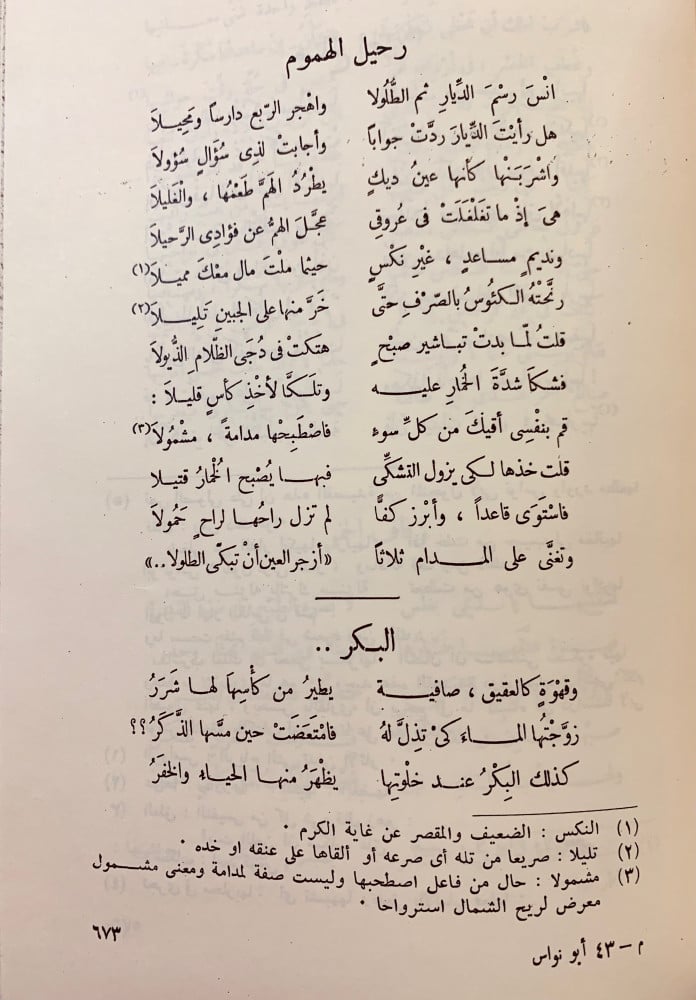 رحيل الهموم
انْسَ رسْمَ الدِّيارِ ثم الطُّلُولا واهْجر الرّبع دارساً ومَحِيلاَ
هل رأيْتَ الدِّيارَ ردَّتْ جواباً وأجابتْ لذِى سُؤَالٍ سُؤُولاَ
واشْرَبَنْها كأنها عينُ ديكٍ يطْرُدُ الهَمَّ طَعْمُها ، والْغَليلاَ
هىَ إذْ ما تَغَلْغَلَتْ فى عُروقى عجَّلَ الهمُّ عن فؤادِى الرَّحيلاَ
ونديمٍ مساعدٍ ، غيْرِ نكْسٍ حيثما ملْتَ مال معْكَ مميلاَ (١)
رنَّحتْهُ الكئوسُ بالصِّرْفِ حتَّى خَرَّ منها على الجبينِ تَلِيلاَ (٢)
قلتُ لمّا بدتْ تباشير صبْحٍ هتكتْ فى دُجَى الظَّلامِ الذُّيولاَ
فشكاَ شدَّةَ الخُمارِ عليه وتلَكَّاَ لأخْذِ كأسٍ قليلاَ :
قم بنفْسِى أقيكَ من كلِّ سوءٍ فاصْطَبِحْها مدامةً ، مشْمُولاَ (٣)
قلت خذها لكى يزول التشكِّى فبها يُصْبح الْخُمارُ قتيلا
فاسْتَوَى قاعداً ، وأبْرز كفًّا لم تزل راحُها لراحٍ حَمُولاَ
وتغنَّى على المدام ثلاثاً «أزجر العين أنْ تبكّى الطلولا..»
البكر ..
وقهْوَةٍ كالعقيق ، صافية يطيرُ من كأْسِها لها شَرَرُ
زوَّجْتُها الماءَ كىْ تذِلَّ لهُ فامْتَعَضَتْ حين مسَّها الذَّكَرُ؟؟
كذلك البِكْرُ عند خلْوتِها يظْهَرُ منها الحياءِ والخَفَرُ
(١) النكس : الضعيف والمقصر عن غاية الكرم .
(٢) تليلا : صريعا من تله أى صرعه أو ألقاها على عنقه او خده .
(٣) مشمولا : حال من فاعل اصطحبها وليست صفة لمدامة ومعنى مشمول
معرض لريح الشمال استرواحا .
٦٧٣
م – ٤٣ أبو نواس